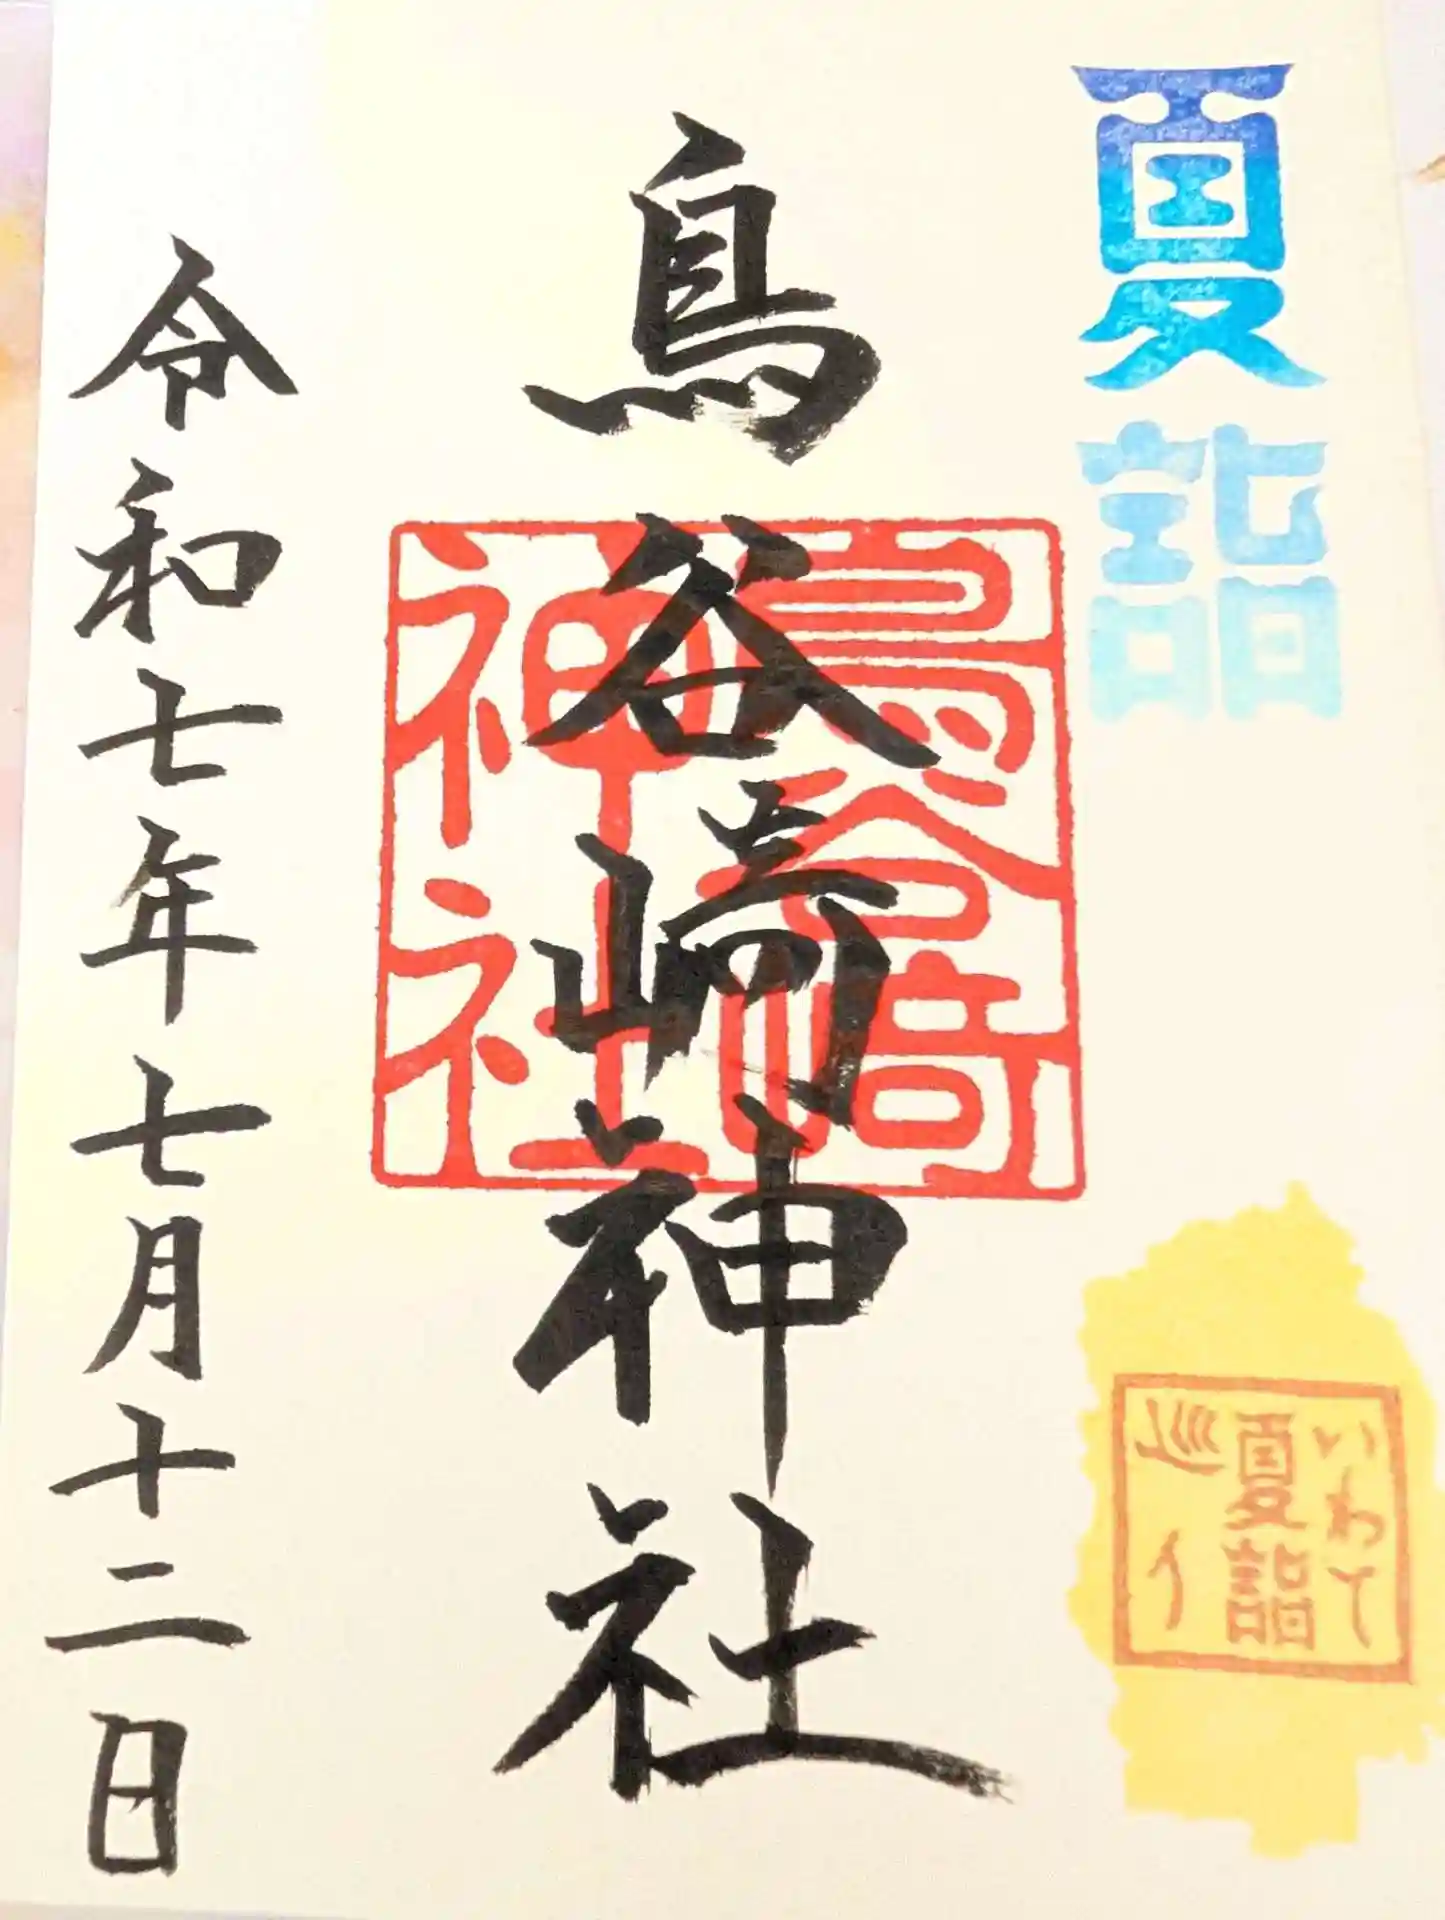 夏詣
いわて
夏詣
巡り
鳥谷崎神社
鳥谷崎
神社
令和七年七月十二日